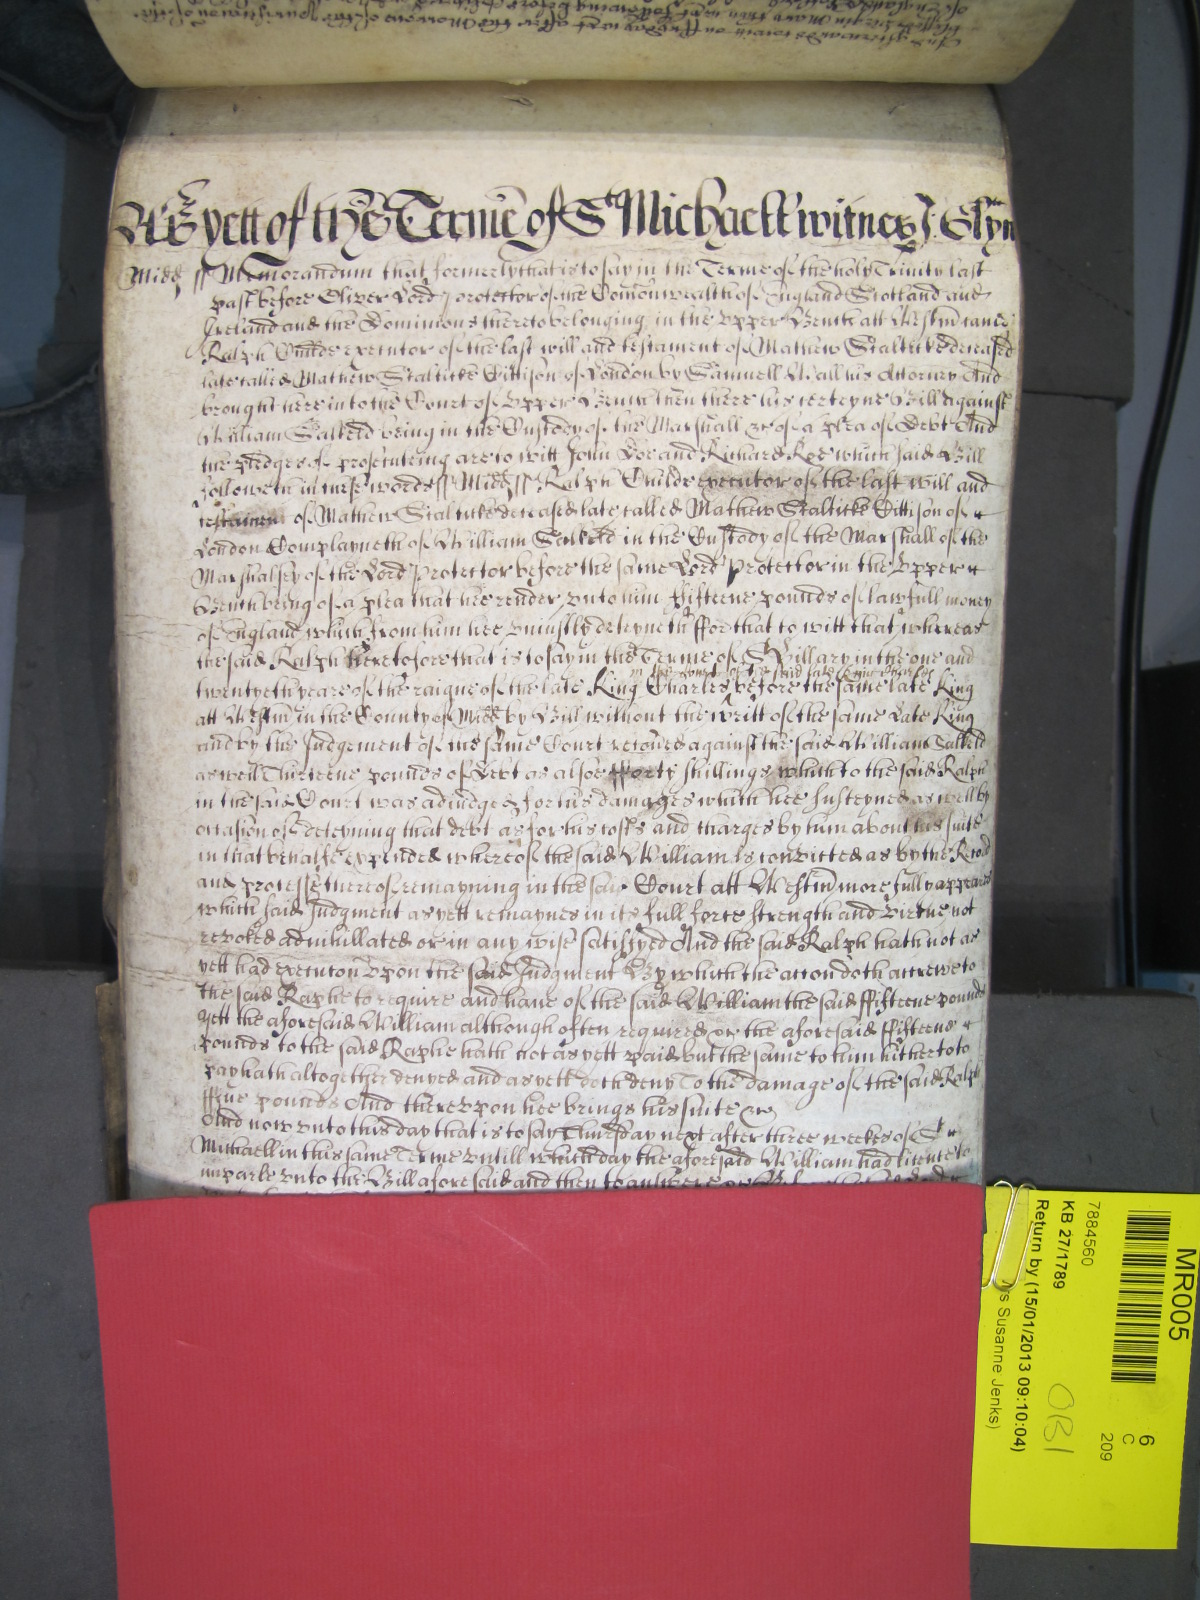 As yett of the Terme of St Michaell witnes J: Glyn
Midd ss Memorandum that formerly that is to say in the Terme of the holy Trinity last
past before Oliver Lord Protector of the Comonwealth of England Scotland and
Ireland and the Dominions thereto belonging in the Upper Bench att Westm came
Ralph Childe executor of the last will and testament of Mathew Stalticke deceased
late called Mathew Stalticke Cittison of London by Samuell Wall his Attorney And
brought here into the Court of Upper Bench then there his certeyne Bill against
William Salkeld being in the Custody of the Marshall &c of a plea of Debt And
the pledges of prosecuteing are to witt John Doe and Richard Roe which said Bill
followeth in these words ss Midd ss Ralph Childe executor of the last will and
testament of Mathew Stalticke deceased late called Mathew Stalticke Cittison of
London Complayneth of William Salkeld in the Custody of the Marshall of the
Marshalsey of the Lord Protector before the same Lord Protector in the Upper
Bench being of a plea that hee render unto him fifteene pounds of lawfull money
of England which from him hee uniustly deteyneth ffor that to witt that whereas
the said Ralph heretofore that is to say in the Terme of St Hillary in the one and
in the Court of the said late King Charles
twentyeth yeare of the raigne of the late King Charles before the same late King
att Westm in the County of Midd by Bill without the writt of the same Late King
and by the Judgement of the same Court recoved against the said William Salkeld
as well Thirteene pounds of Debt as alsoe fforty shillings which to the said Ralph
in the said Court was adiudged for his damages which hee susteyned as well by
occasion of deteyning that debt as for his costs and charges by him about his suite
in that behalfe expended whereof the said William is convicted as by the Record
and processe thereof remayning in the said Court att Westm more fully appeares
which said Judgment as yett remaynes in its full force strength and virtue not
revoked adnihillated or in any wise satisfyed And the said Ralph hath not as
yett had execucon upon the said Judgment By which the accon doth accrewe to
the said Raphe to require and have of the said William the said ffifteene pounds
Yett the aforesaid William although often required &c the aforesaid ffifteene
pounds to the said Raphe hath not as yett paid but the same to him hitherto to
pay hath altogether denyed and as yett doth deny To the damage of the said Ralph
ffive pounds And thereupon hee brings his suite &c
And now unto this day that is to say Thursday next after three weekes of St
Michaell in this same Terme untill which day the aforesaid William had licence to
imparle unto the Bill aforesaid and then to answere &c
MR005
6
C
209
7884560
KB 27/1789
Return by (15/01/2013 09:10:04)
Susanne Jenks)
OB1